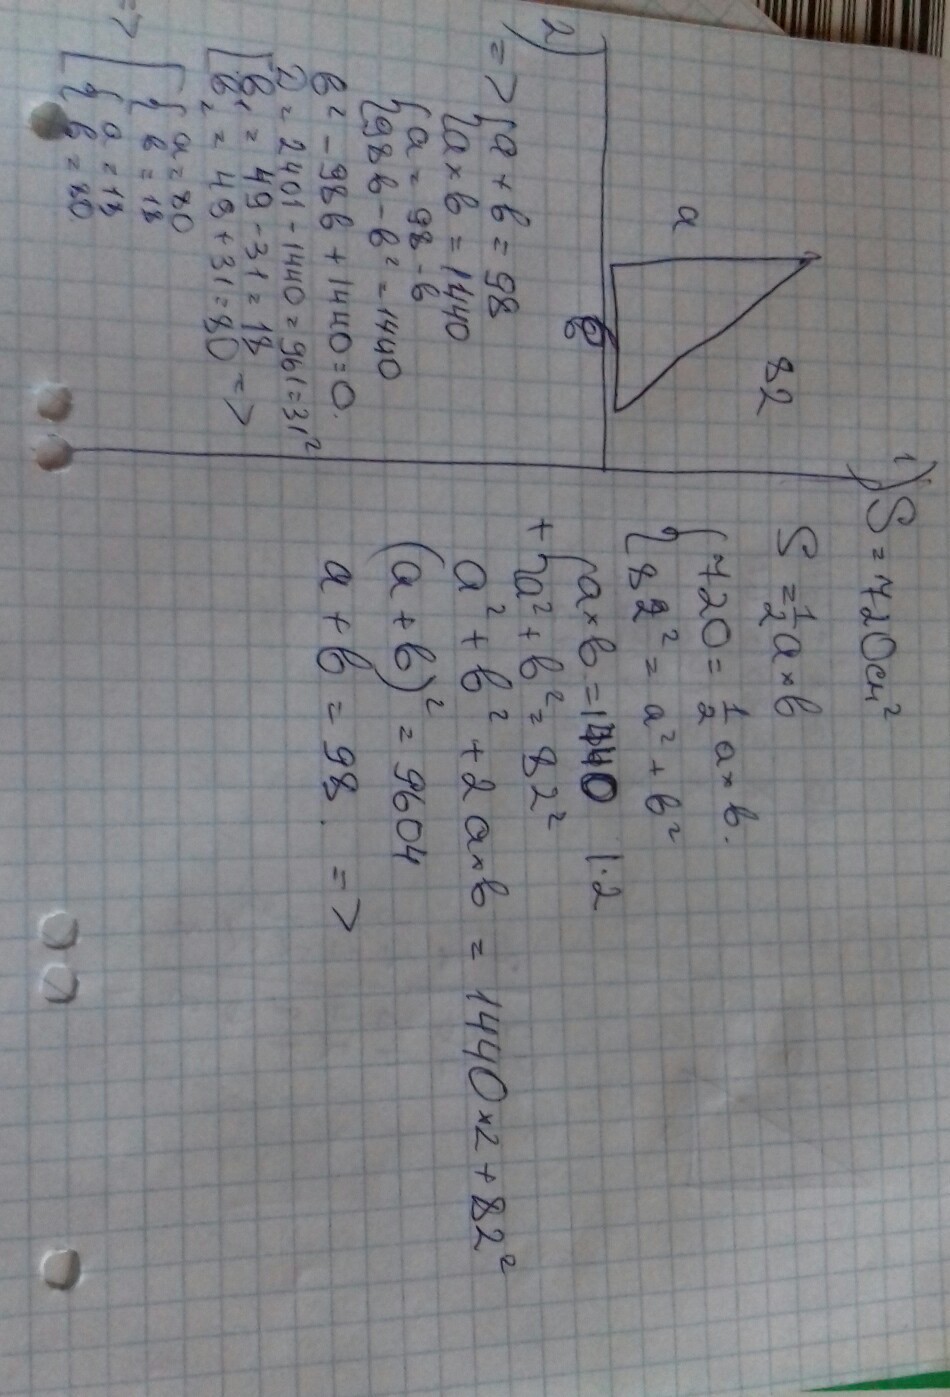 1) S = 720 см²
82
a
b
S = 1/2 a × b
{ 720 = 1/2 a × b.
{ 82² = a² + b²
+ { a × b = 1440 | · 2
{ a² + b² = 82²
a² + b² + 2 a × b = 1440 × 2 + 82²
(a + b)² = 9604
a + b = 98. =>
2)
=> { a + b = 98
{ a × b = 1440
{ a = 98 - b
{ 98b - b² = 1440
b² - 98b + 1440 = 0.
D = 2401 - 1440 = 961 = 31²
[ b₁ = 49 - 31 = 18
[ b₂ = 49 + 31 = 80 =>
=> [ { a = 80
{ b = 18
[ { a = 18
{ b = 80